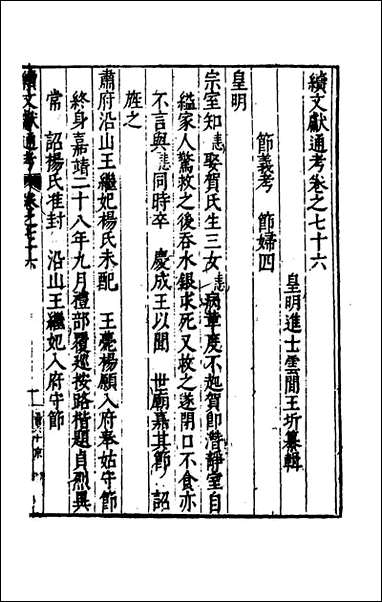 續文獻通考卷之七十六
皇明進士雲間王圻纂輯
節義考 節婦四
皇明
宗室知 娶賀氏生三女 病革度不起賀卽潛靜室自
縊家人驚救之後吞水銀求死又救之遂閉口不食亦
不言與 同時卒 慶成王以聞 世廟嘉其節 詔
旌之
肅府沿山王繼妃楊氏未配 王薨楊願入府奉姑守節
終身嘉靖二十八年九月禮部覆巡按路楷題貞烈異
常 詔楊氏准封 沿山王繼妃入府守節
續文獻通考 卷之七十六